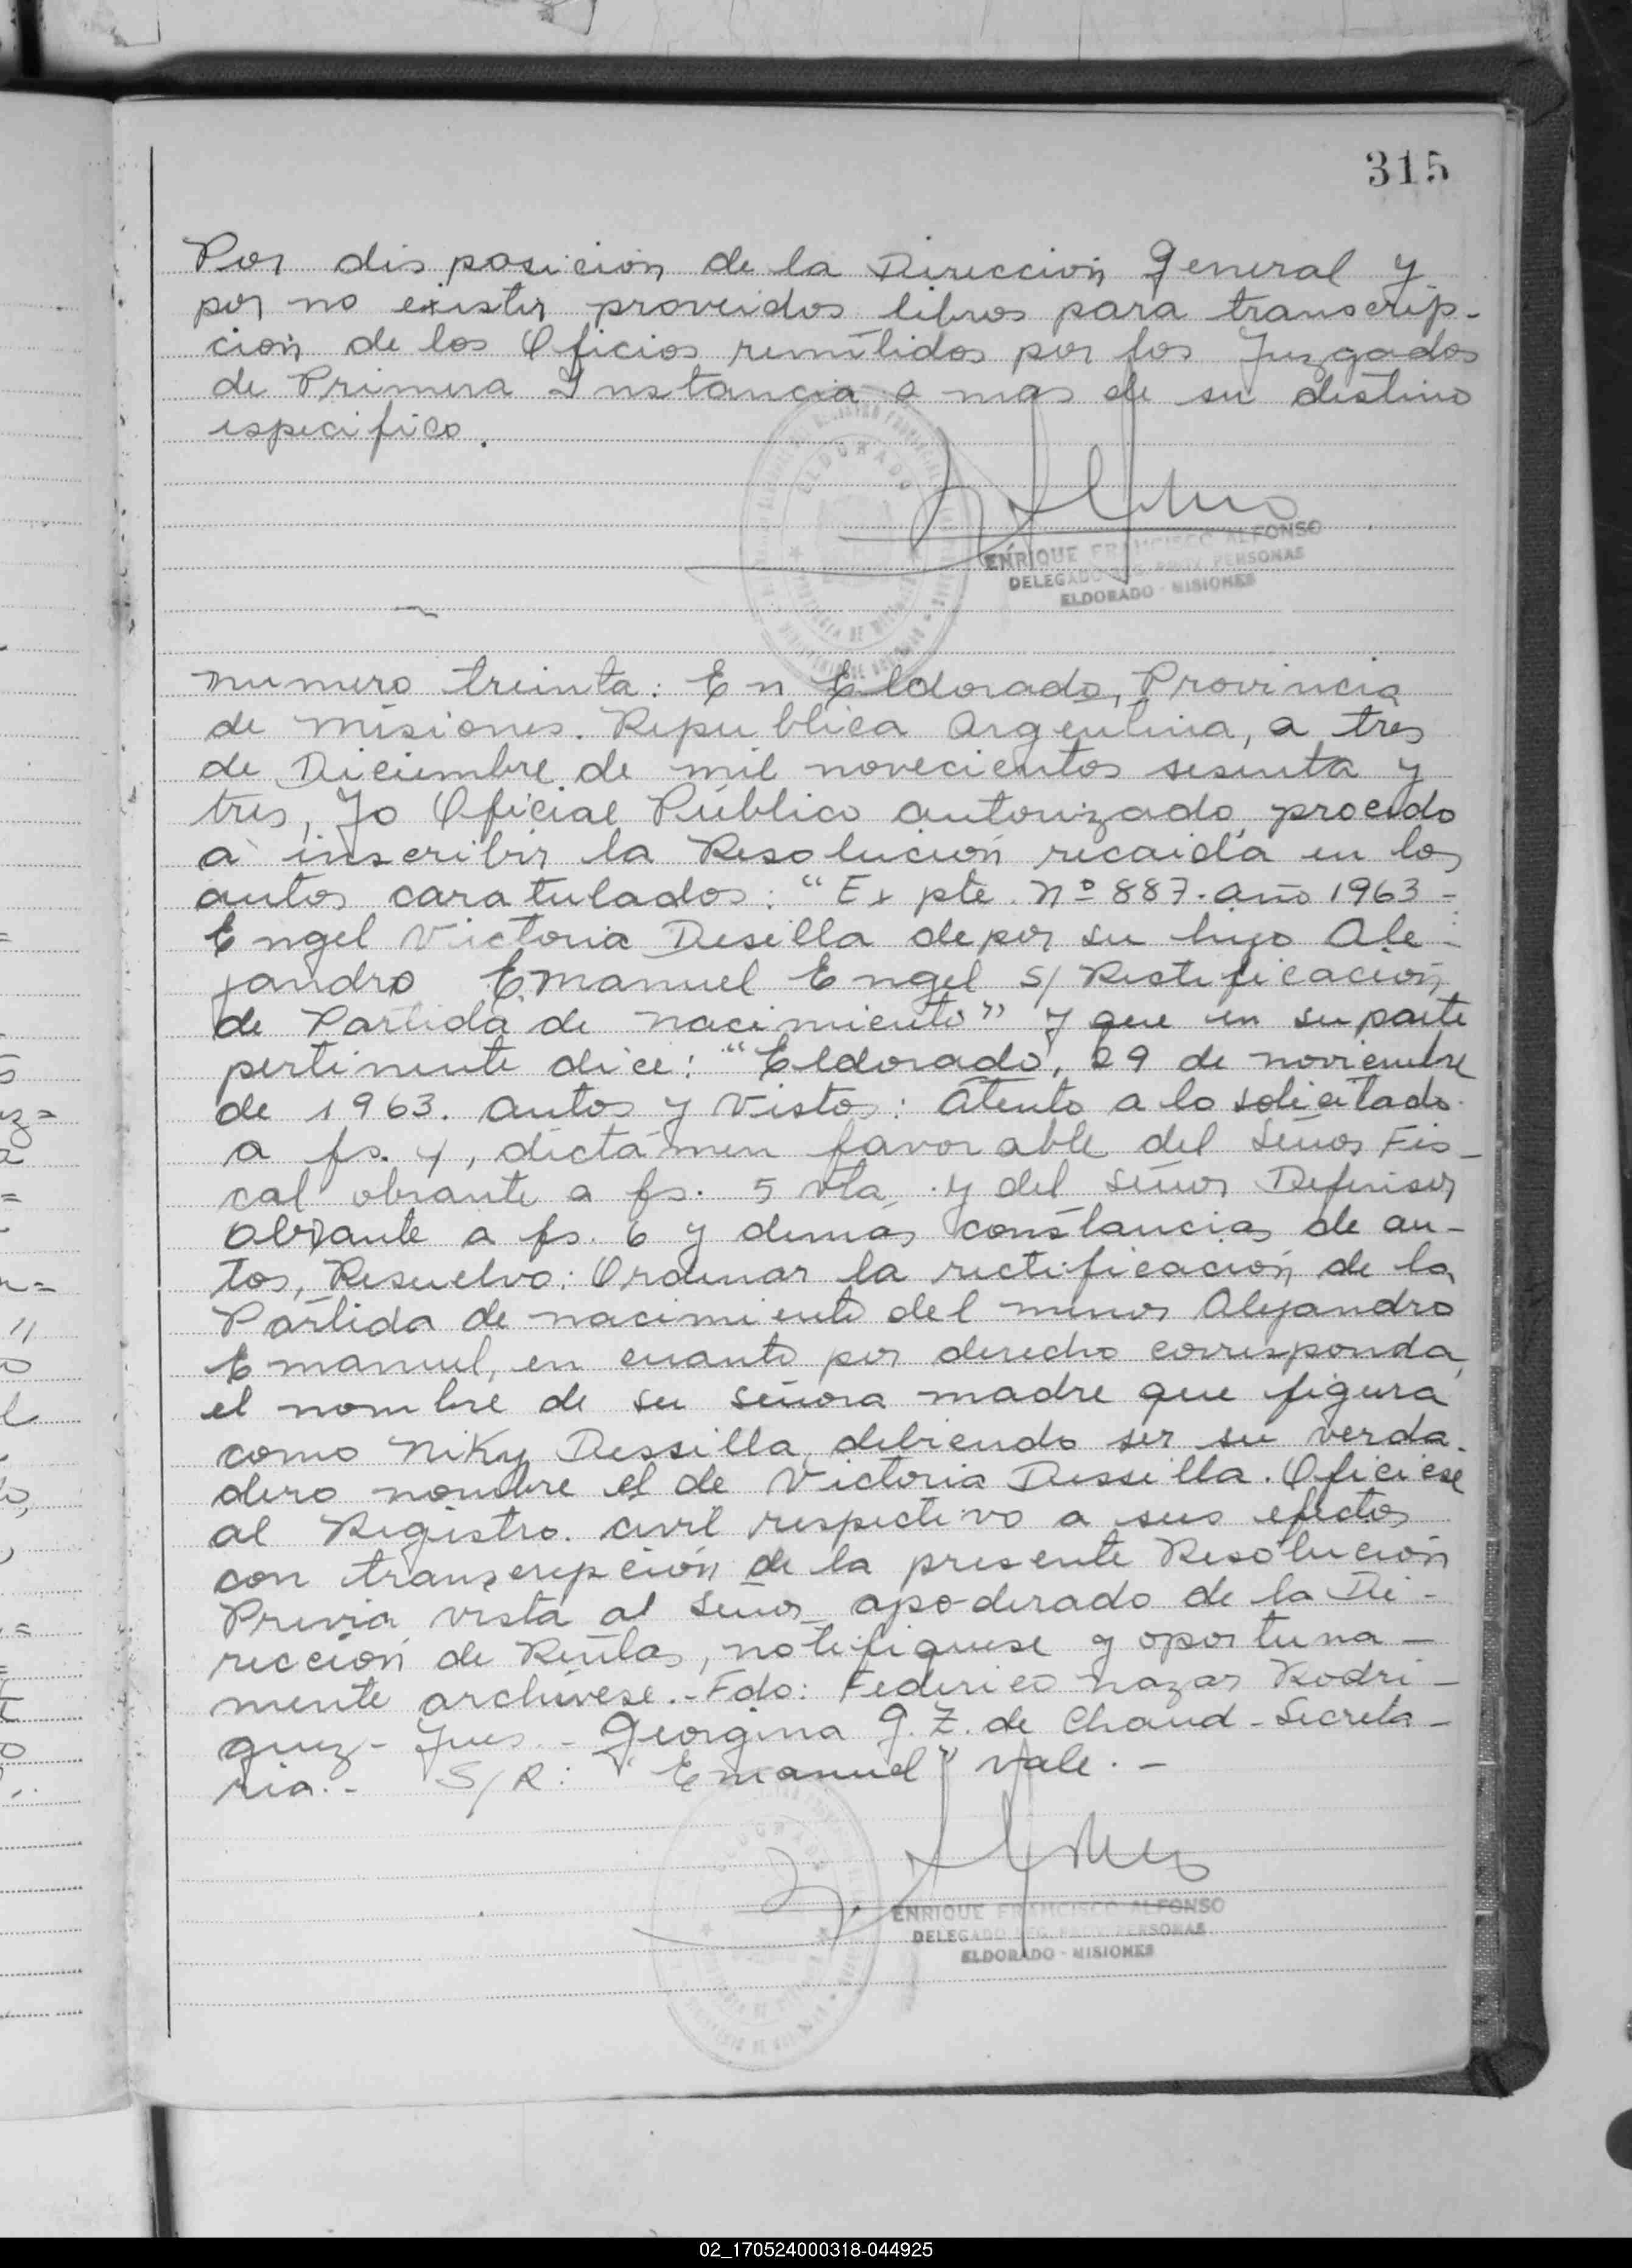 315
Por disposicion de la Direccion General y
por no existir proveidos libros para transcrip-
cion de los Oficios remitidos por los Juzgados
de Primera Instancia a mas de su destino
especifico.
ELDORADO
ENRIQUE FRANCISCO ALFONSO
DELEGADO REG. PROV. PERSONAS
ELDORADO - MISIONES
numero treinta: En Eldorado, Provincia
de Misiones. Republica Argentina, a tres
de Diciembre de mil novecientos sesenta y
tres, Yo Oficial Público autorizado, procedo
a inscribir la Resolución recaida en los
autos caratulados: "Expte. Nº 887. año 1963 -
Engel Victoria Desilla de por su hijo Ale-
jandro Emanuel Engel S/ Rectificación
de Partida de nacimiento" y que en su parte
pertinente dice: "Eldorado, 29 de noviembre
de 1963. Autos y Vistos: Atento a lo solicitado
a fs. 4, dictámen favorable del Señor Fis-
cal obrante a fs. 5 vta. y del Señor Defensor
obrante a fs. 6 y demás constancias de au-
tos, Resuelvo: Ordenar la rectificación de la
Partida de nacimiento del menor Alejandro
Emanuel, en cuanto por derecho corresponda,
el nombre de su señora madre que figura
como Niky Dessilla, debiendo ser su verda-
dero nombre el de Victoria Dessilla. Ofíciese
al Registro civil respectivo a sus efectos
con transcripción de la presente Resolución
Previa vista al Señor apoderado de la Di-
rección de Rentas, notifiquese y oportuna-
mente archívese.- Fdo: Federico Nazar Rodri-
guez - Juez. - Georgina G. Z. de Chaud - Secreta-
ria.- S/R: "Emanuel" Vale. -
ELDORADO
ENRIQUE FRANCISCO ALFONSO
DELEGADO REG. PROV. PERSONAS
ELDORADO - MISIONES
02_170524000318-044925